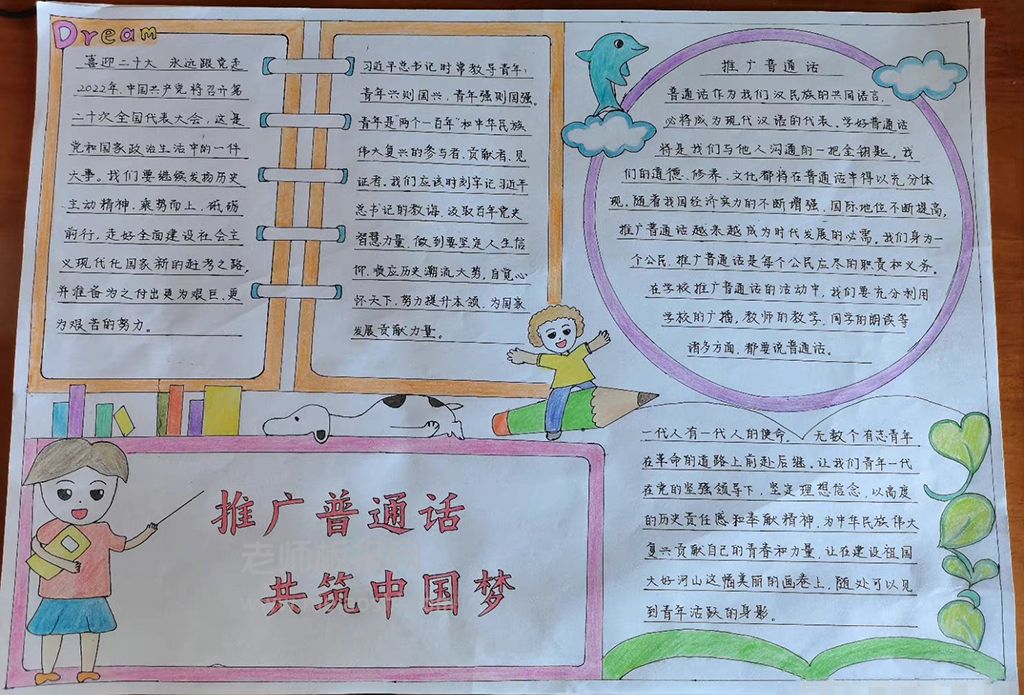 Dream
喜迎二十大 永远跟党走
2022年，中国共产党将召开第
二十次全国代表大会，这是
党和国家政治生活中的一件
大事。我们要继续发扬历史
主动精神，乘势而上，砥砺
前行，走好全面建设社会主
义现代化国家新的赶考之路，
并准备为之付出更为艰巨、更
为艰苦的努力。
习近平总书记时常教导青年：
青年兴则国兴，青年强则国强。
青年是"两个一百年"和中华民族
伟大复兴的参与者、贡献者、见
证者。我们应该时刻牢记习近平
总书记的教诲，汲取百年党史
智慧力量，做到要坚定人生信
仰，顺应历史潮流大势，自觉心
怀天下，努力提升本领，为国家
发展贡献力量。
推广普通话
普通话作为我们汉民族的共同语言，
必将成为现代汉语的代表。学好普通话
将是我们与他人沟通的一把金钥匙，我
们的道德、修养、文化都将在普通话中得以充分体
现。随着我国经济实力的不断增强，国际地位不断提高，
推广普通话越来越成为时代发展的必需。我们身为一
个公民，推广普通话是每个公民应尽的职责和义务。
在学校推广普通话的活动中，我们要充分利用
学校的广播，教师的教学，同学的朗读等
诸多方面，都要说普通话。
一代人有一代人的使命。 无数个有志青年
在革命的道路上前赴后继。让我们青年一代
在党的坚强领导下，坚定理想信念，以高度
的历史责任感和奉献精神，为中华民族伟大
复兴贡献自己的青春和力量，让在建设祖国
大好河山这幅美丽的画卷上，随处可以见
到青年活跃的身影。
推广普通话
共筑中国梦